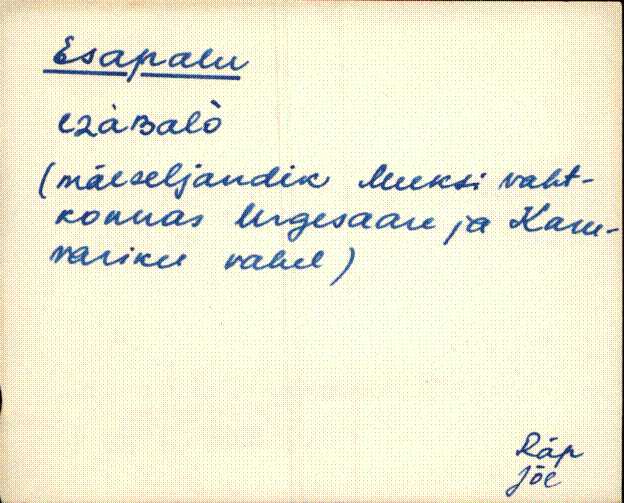 Esapalu
ezàBalò
(mäeseljandik Meeksi vaht-
konnas Urgesaare ja Karu-
variku vahel)
Räp
Jõe